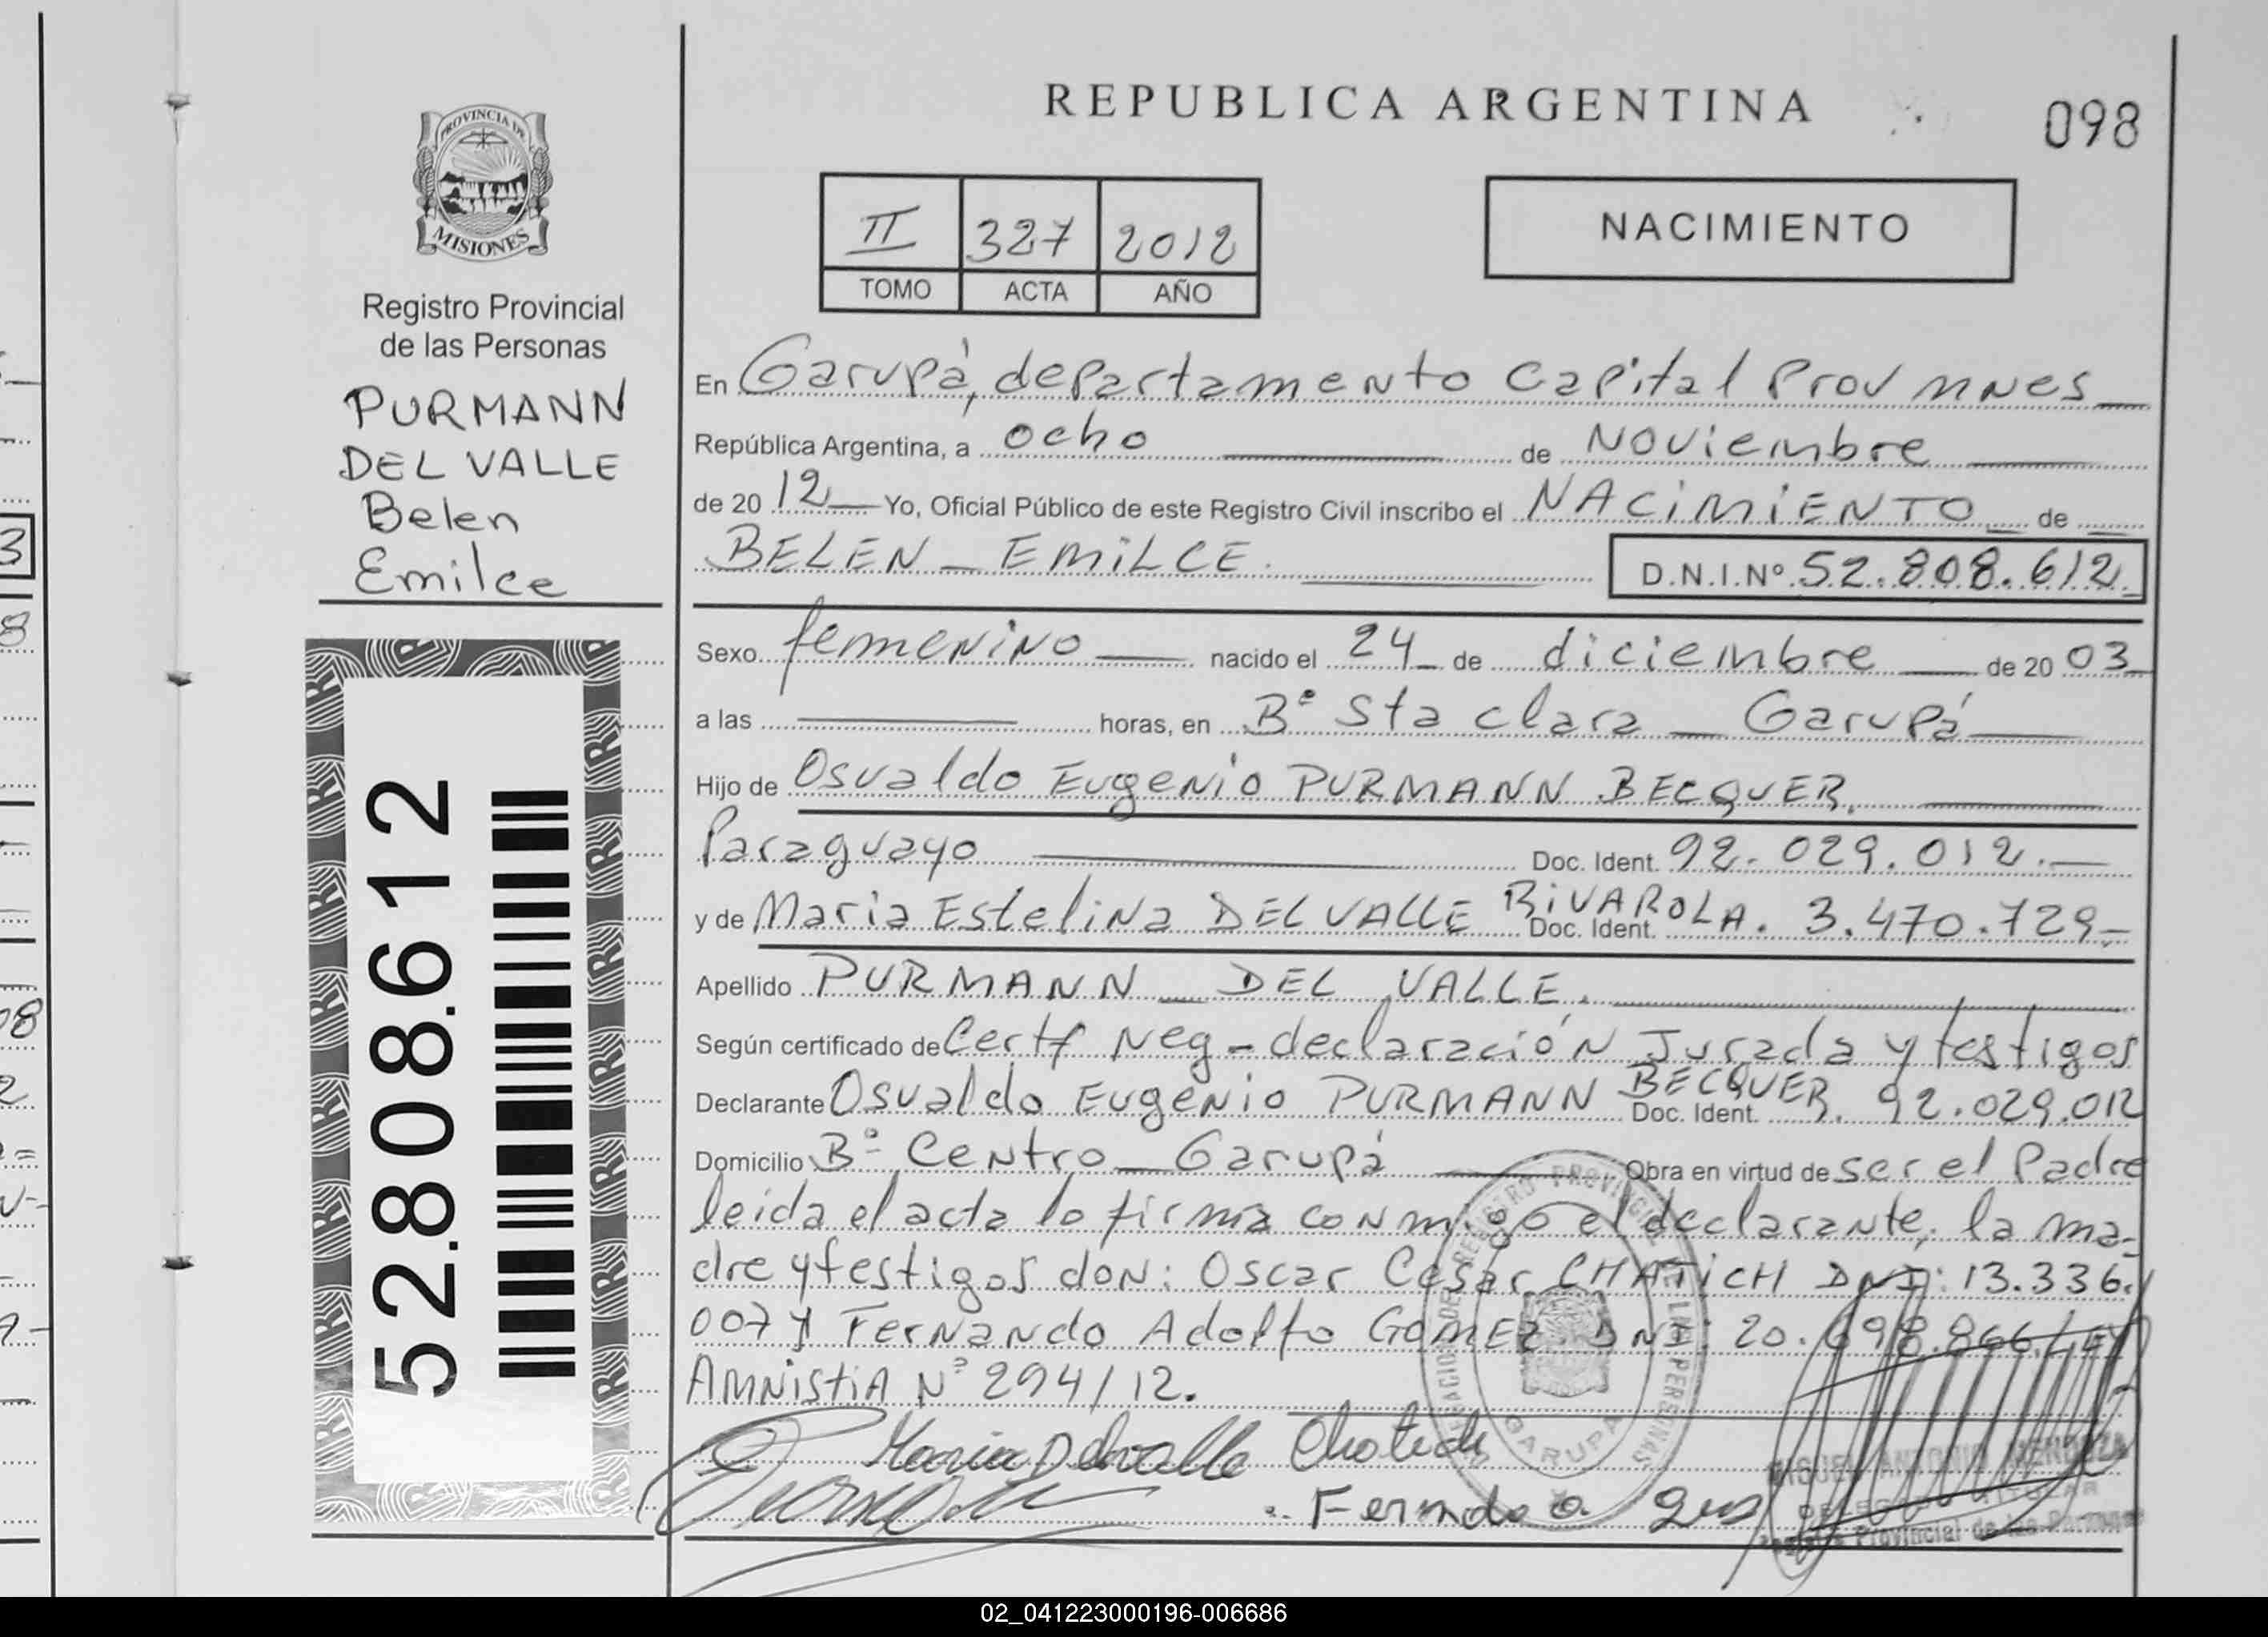 REPUBLICA ARGENTINA
098
PROVINCIA DE
MISIONES
Registro Provincial
de las Personas
PURMANN
DEL VALLE
Belen
Emilce
52.808.612
II 327 2012
TOMO ACTA AÑO
NACIMIENTO
En Garupá, departamento Capital Prov mnes
República Argentina, a ocho de Noviembre
de 20 12 Yo, Oficial Público de este Registro Civil inscribo el NACIMIENTO de
BELEN - EMILCE. D.N.I.Nº 52.808.612
Sexo femenino nacido el 24 de diciembre de 20 03
a las horas, en Bº Sta clara - Garupá
Hijo de Osvaldo Eugenio PURMANN BECQUER.
Paraguayo Doc. Ident. 92.029.012.
y de Maria Estelina DEL VALLE RIVAROLA. Doc. Ident. 3.470.729
Apellido PURMANN - DEL VALLE.
Según certificado de Certf Neg - declaración Jurada y testigos
Declarante Osvaldo Eugenio PURMANN BECQUER. Doc. Ident. 92.029.012
Domicilio Bº Centro - Garupá Obra en virtud de ser el Padre
leida el acta lo firma conmigo el declarante, la ma-
dre y testigos don: Oscar Cesar CHATICH DNI: 13.336.
007 y Fernando Adolfo GOMEZ DNI: 20.698.866 LEY
AMNISTIA Nº 294/12.
Maria Delvalle
GARUPA
MIGUEL ANTONIO MENDOZA
DELEGADO TITULAR
Registro Provincial de las Personas
02_041223000196-006686